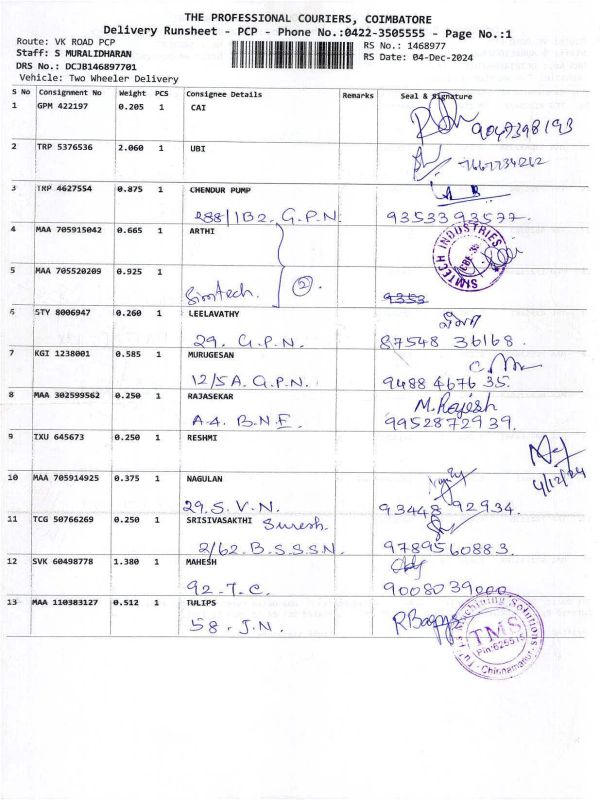 THE PROFESSIONAL COURIERS, COIMBATORE
Delivery Runsheet - PCP - Phone No.:0422-3505555 - Page No.:1
Route: VK ROAD PCP RS No.: 1468977
Staff: S MURALIDHARAN RS Date: 04-Dec-2024
DRS No.: DCJB146897701
Vehicle: Two Wheeler Delivery
S No Consignment No Weight PCS Consignee Details Remarks Seal & Signature
1 GPM 422197 0.205 1 CAI
9047398193
2 TRP 5376536 2.060 1 UBI
7667734262
3 TRP 4627554 0.875 1 CHENDUR PUMP
288/1B2. G.P.N. 93533 93577.
4 MAA 705915042 0.665 1 ARTHI
SIMTECH INDUSTRIES
5 MAA 705520209 0.925 1
Simtech. 2 9353
6 STY 8006947 0.260 1 LEELAVATHY
29. G.P.N. 87548 36168.
7 KGI 1238001 0.585 1 MURUGESAN
12/5A. G.P.N. 94884676 35.
8 MAA 302599562 0.250 1 RAJASEKAR M.Rajesh
A4. B.N.E. 9952872939.
9 IXU 645673 0.250 1 RESHMI
4/12/24
10 MAA 705914925 0.375 1 NAGULAN
29. S. V. N. 93448 92934.
11 TCG 50766269 0.250 1 SRISIVASAKTHI Suresh.
2/62. B.S.S.S.N. 9789560883.
12 SVK 60498778 1.380 1 MAHESH
92. T. C. 9008039000
13 MAA 110383127 0.512 1 TULIPS
58. J.N.
TMS
Machining Solutions